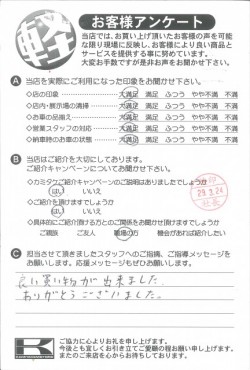 軽
お客様アンケート
当店では、お買い上げ頂いたお客様の声を可能
な限り現場に反映し、お客様により良い商品と
サービスを提供する事に努めています。
大変お手数ですが是非お声をお聞かせ下さい。
A 当店を実際にご利用になった印象をお聞かせ下さい。
◇店の印象 大満足 満足 ふつう やや不満 不満
◇店内・展示場の清掃 大満足 満足 ふつう やや不満 不満
◇お車の品揃え 大満足 満足 ふつう やや不満 不満
◇営業スタッフの対応 大満足 満足 ふつう やや不満 不満
◇納車時のお車の状態 大満足 満足 ふつう やや不満 不満
B 当店はご紹介を大切にしております。
ご紹介キャンペーンについてお聞かせ下さい。
◇カミタケご紹介キャンペーンのご説明はありましたでしょうか
はい いいえ
◇ご紹介して頂けますでしょうか
はい いいえ
◇具体的にご紹介頂ける方とのご関係をお聞かせ頂けますでしょうか
ご親族 ご友人 職場の方 機会があれば紹介したい
C 担当させて頂きましたスタッフへのご指摘、ご指導メッセージを
お願いします。応援メッセージもぜひお願いします。
良い買い物が出来ました。
ありがとうございました。
K
ご協力に心よりお礼を申し上げます。
今後とも宜しくお引き立てご愛顧の程お願い申し上げます。
またのご来店を心からお待ちしております。